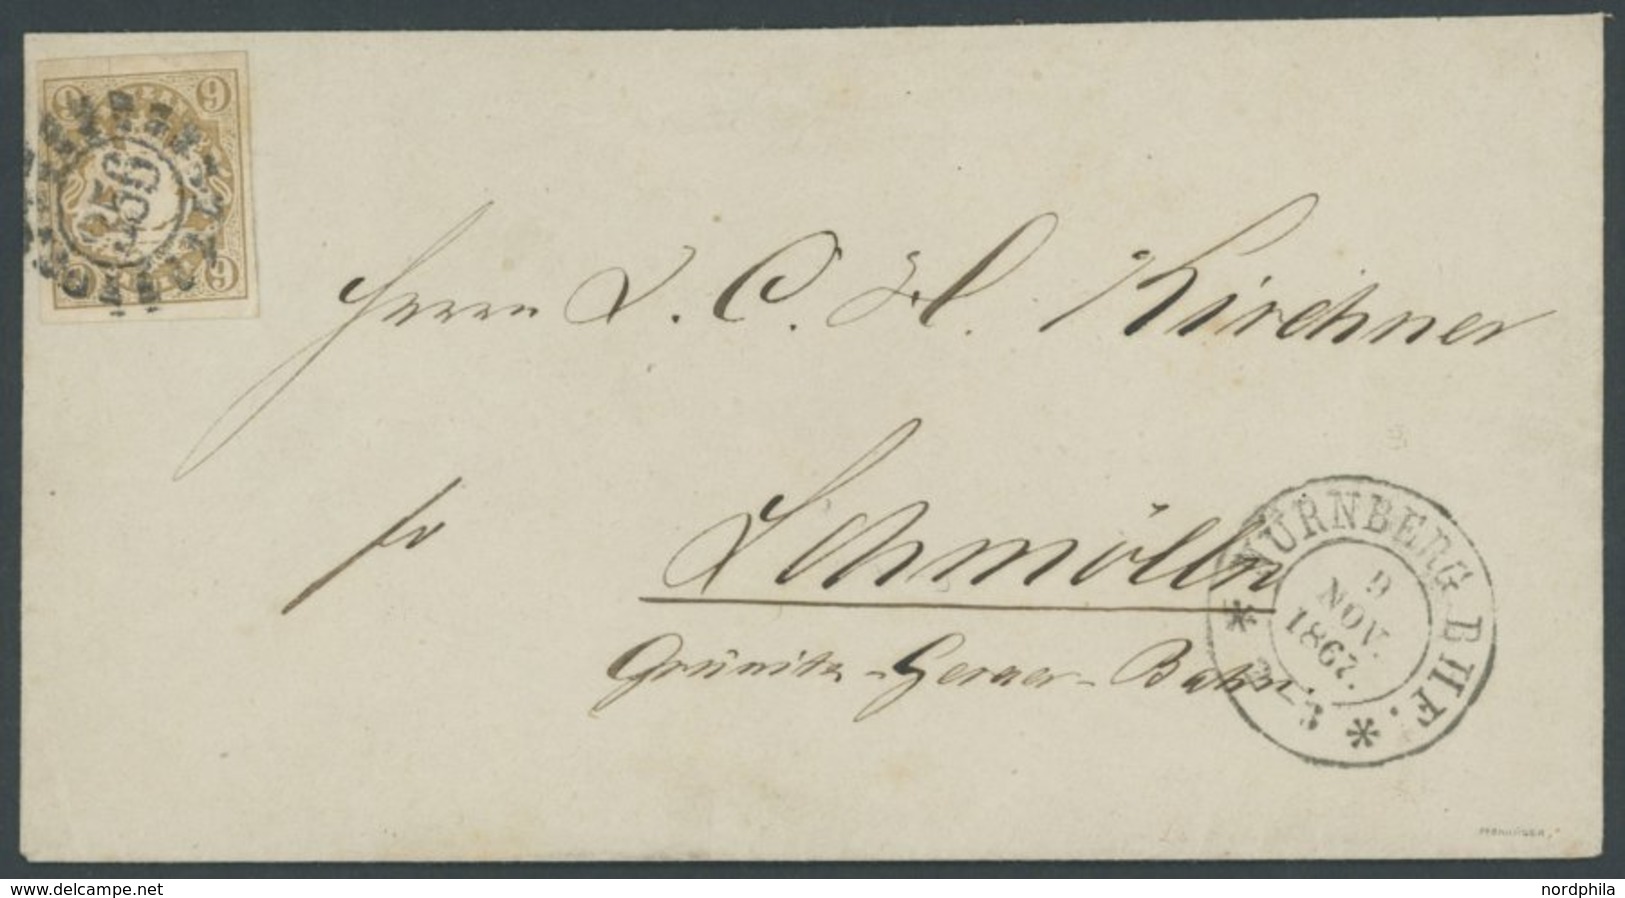 9 9
356
9
Herrn J. C. H. Kirchner
fr
Schmölln
Grünitz-Geraer-Bahn.
NÜRNBERG BHF.
9
NOV.
1867.
2-3
PFENNINGER
www.delcampe.net
nordphila